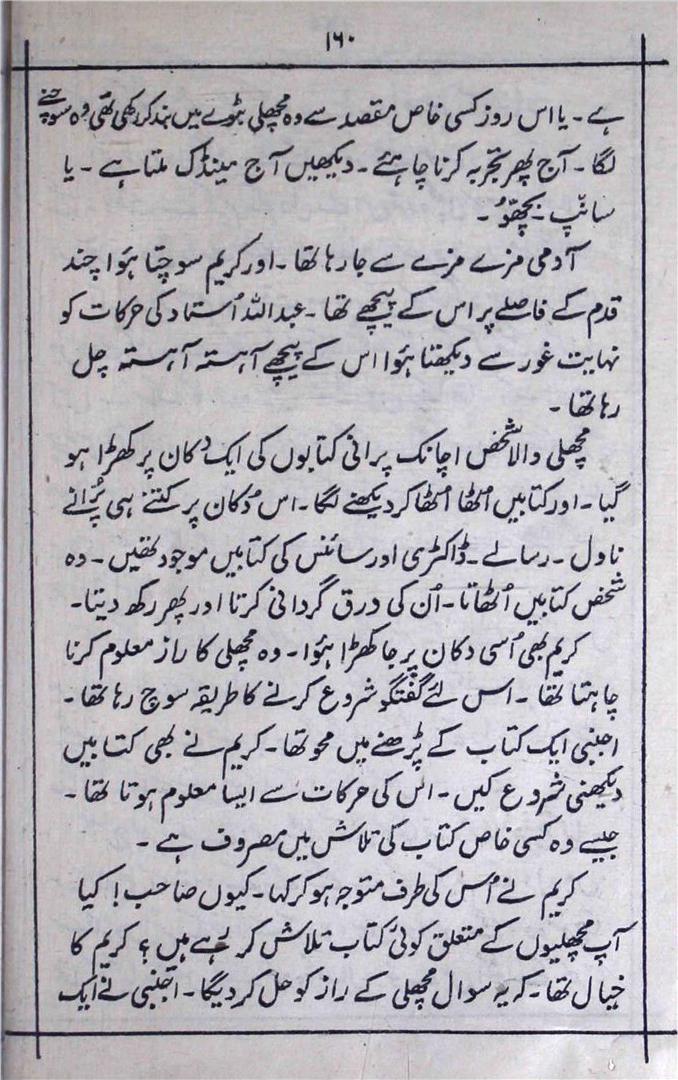 ۱۶۰
ہے ۔ یا اس روز کسی خاص مقصد سے وہ مچھلی بٹوے میں بند کر رکھی تھی وہ سوچنے
لگا ۔ آج پھر تجربہ کرنا چاہئے ۔ دیکھیں آج مینڈک ملتا ہے ۔ یا
سانپ ۔ بچھّو ۔
آدمی مزے مزے سے جا رہا تھا ۔ اور کریم سوچتا ہوا چند
قدم کے فاصلے پر اس کے پیچھے تھا ۔ عبداللہ اُستاد کی حرکات کو
نہایت غور سے دیکھتا ہوا اس کے پیچھے آہستہ آہستہ چل
رہا تھا ۔
مچھلی والا شخص اچانک پرانی کتابوں کی ایک دُکان پر کھڑا ہو
گیا ۔ اور کتابیں اُٹھا اُٹھا کر دیکھنے لگا ۔ اس دُکان پر کتنے ہی پُرانے
ناول ۔ رسالے ۔ ڈاکٹری اور سائنس کی کتابیں موجود تھیں ۔ وہ
شخص کتابیں اُٹھاتا ۔ اُن کی ورق گردانی کرتا اور پھر رکھ دیتا ۔
کریم بھی اُسی دکان پر جا کھڑا ہوا ۔ وہ مچھلی کا راز معلوم کرنا
چاہتا تھا ۔ اس لئے گفتگو شروع کرنے کا طریقہ سوچ رہا تھا ۔
اجنبی ایک کتاب کے پڑھنے میں محو تھا ۔ کریم نے بھی کتابیں
دیکھنی شروع کیں ۔ اس کی حرکات سے ایسا معلوم ہوتا تھا ۔
جیسے وہ کسی خاص کتاب کی تلاش میں مصروف ہے ۔
کریم نے اُس کی طرف متوجہ ہو کر کہا ۔ کیوں صاحب ! کیا
آپ مچھلیوں کے متعلق کوئی کتاب تلاش کر رہے ہیں ؟ کریم کا
خیال تھا ۔ کہ یہ سوال مچھلی کے راز کو حل کر دیگا ۔ اجنبی نے ایک